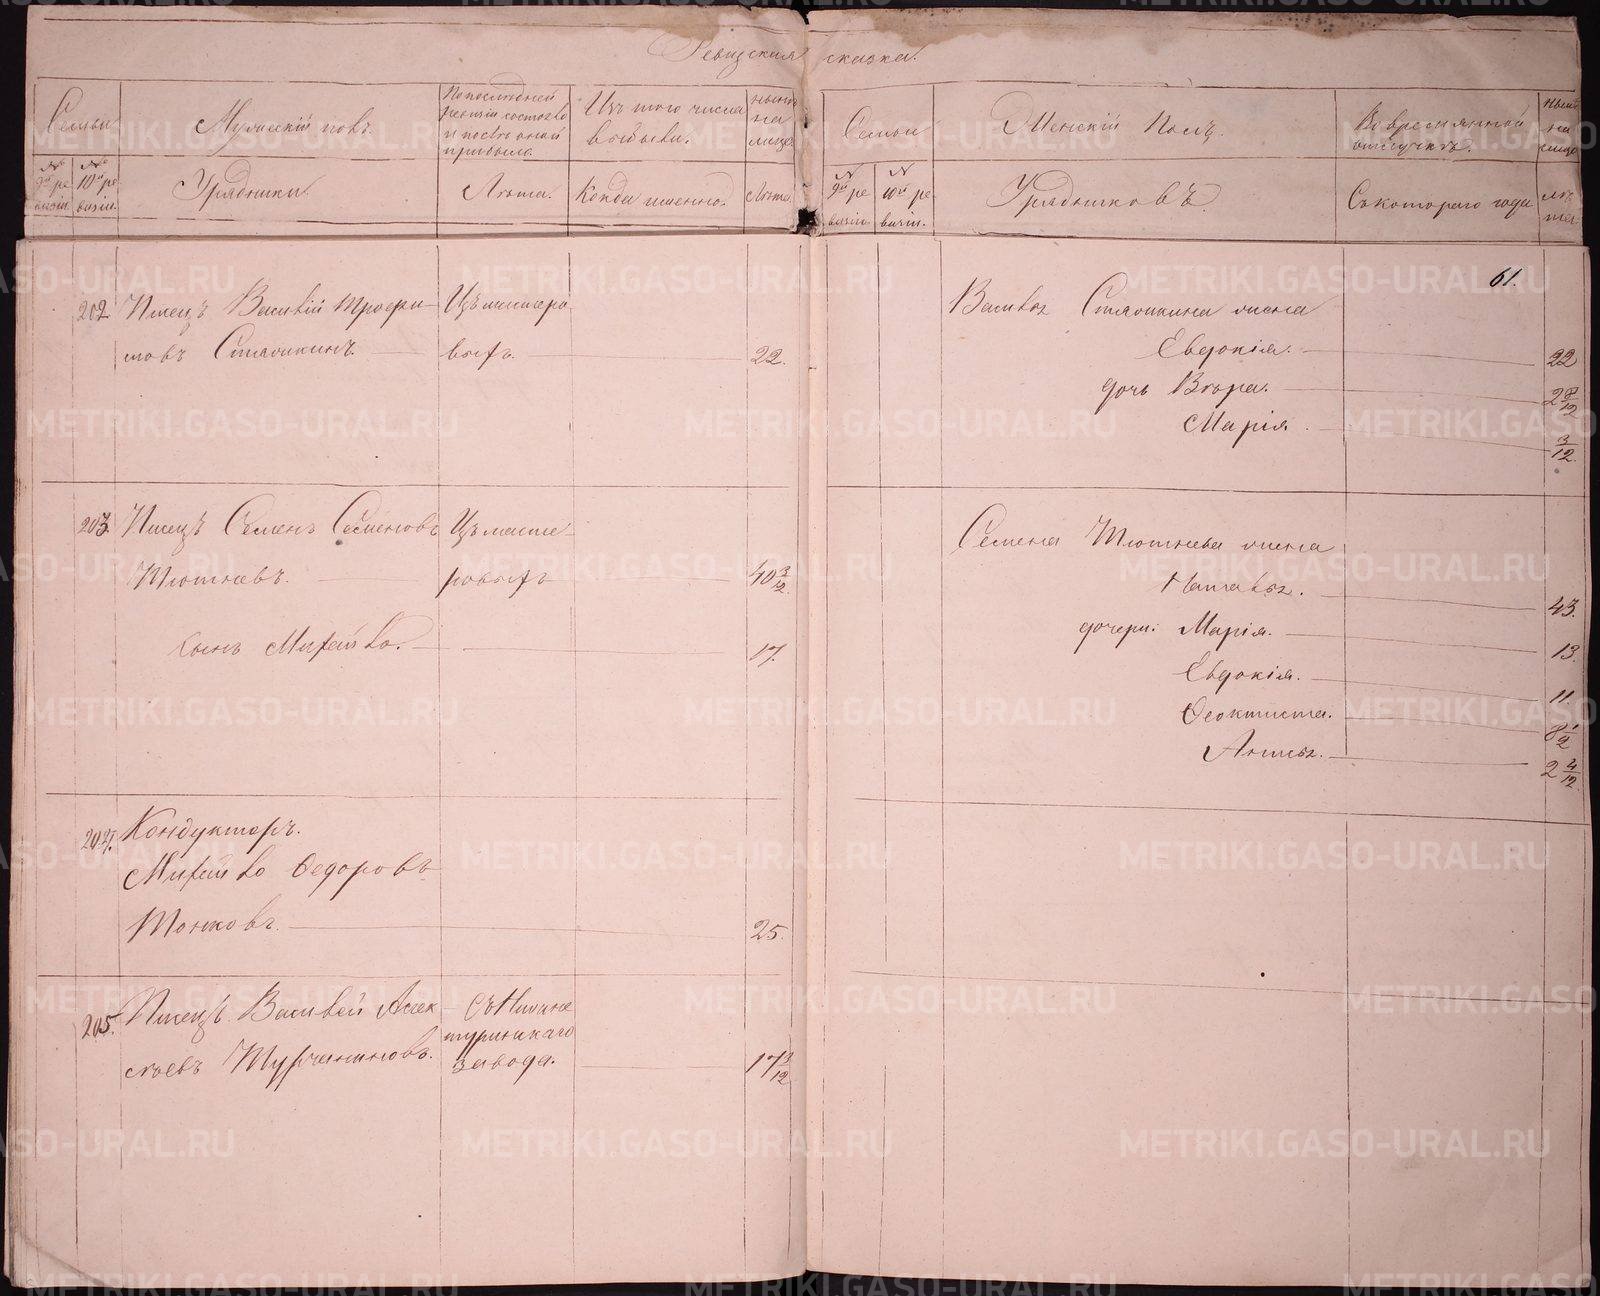 Ревизская сказка.
Семьи
Мужескій полъ.
По последней ревизіи состояло и после оной прибыло.
Изъ того числа выбыли.
ныне на лицо.
№ 9й ревизіи.
№ 10й ревизіи.
Урядники.
Лѣта.
Когда именно.
Лѣта.
202. Писецъ Василій Трофи-
мовъ Стяшкинъ.
Изъ мастеро-
выхъ.
22.
203. Писецъ Семенъ Семеновъ
Плотневъ.
Изъ масте-
ровыхъ
40 3/12
сынъ Михайло.
17.
204. Кондукторъ.
Михайло Ѳедоровъ
Тонковъ.
25.
205. Писецъ Василей Алек
сѣевъ Турчаниновъ.
Съ Нижне
туринскаго
завода.
17 3/12
Семьи
Женскій Полъ.
Во временной отлучкѣ.
ныне на лицо
№ 9й ревизіи
№ 10й ревизіи.
Урядниковъ.
Съ котораго года
лѣта.
61.
Василья Стяшкина жена
Евдокія.
22
дочь Вѣра.
2 8/12
Марія.
3/12.
Семена Плотнева жена
Наталья.
43.
дочери: Марія.
13.
Евдокія.
11.
Ѳеоктиста.
8 1/2
Анна.
2 4/12
METRIKI.GASO-URAL.RU